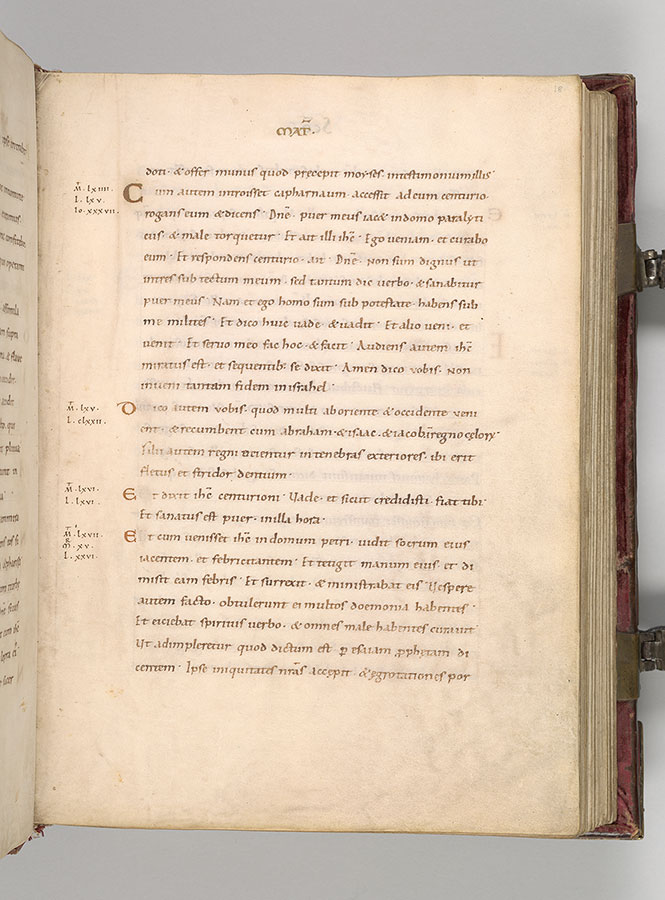 MAT̄.
doti · & offer munus quod precepit moyses intestimonium illis
M̄. lxiiii.
L. lxv.
Io. xxxvii.
Cum autem introisset capharnaum · accessit adeum centurio
rogans eum & dicens · Dn̄e · puer meus iac& indomo paralyti
cus · & male torquetur · Et ait illi ihc̄ · Ego veniam · et curabo
eum · Et respondens centurio · ait · Dn̄e · Non sum dignus ut
intres sub tectum meum · sed tantum dic verbo · & sanabitur
puer meus · Nam et ego homo sum sub potestate · habens sub
me milites · Et dico huic uade · & uadit · Et alio veni · et
venit · Et servo meo fac hoc · & facit · Audiens autem ihc̄
miratus est · et sequentib; se dixit · Amen dico vobis · Non
inveni tantam fidem inisrahel ·
M̄. lxv.
L. clxxii.
Dico autem vobis · quod multi aboriente & occidente veni
ent · & recumbent cum abraham · & isaac · & iacob inregno celorꝝ
Filii autem regni eicientur intenebras exteriores · ibi erit
fletus et stridor dentium ·
M̄. lxvi.
L. lxvi.
Et dixit ihc̄ centurioni · Uade · et sicut credidisti · fiat tibi ·
Et sanatus est puer · inilla hora ·
M̄. lxvii.
M̄. xv.
L. xxvi.
Et cum venisset ihc̄ indomum petri · vidit socrum eius
iacentem · et febricitantem · Et tetigit manum eius · et di
misit eam febris · Et surrexit · & ministrabat eis · Uespere
autem facto · obtulerunt ei multos doemonia habentes ·
Et eiciebat spiritus verbo · & omnes male habentes curavit
Ut adimpleretur quod dictum est ꝑ esaiam ꝓphetam di
centem · Ipse iniquitates nr̄as accepit · & egrotationes por